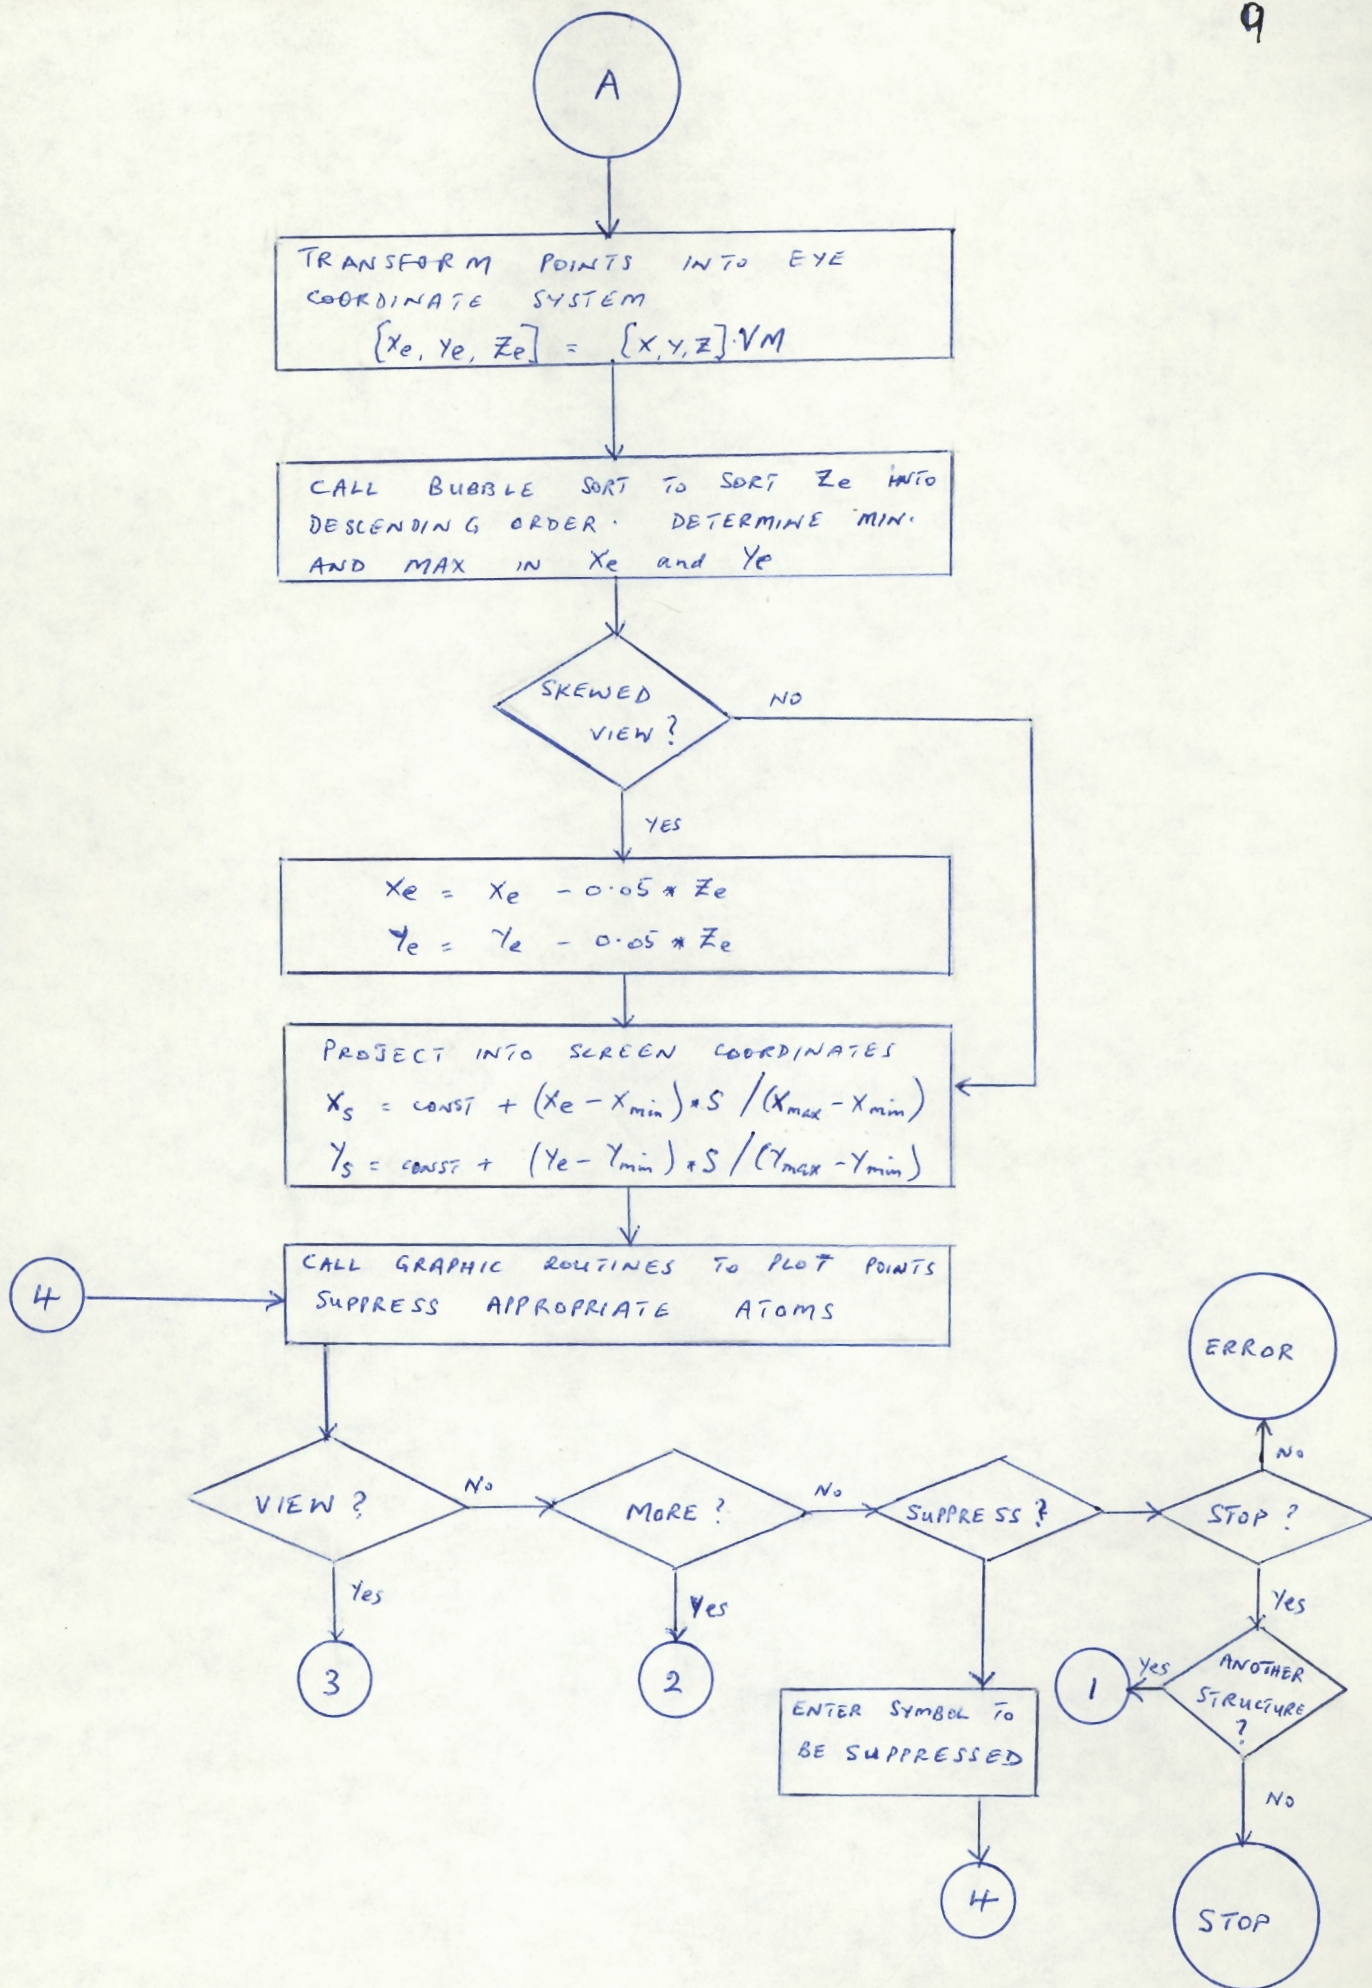 9
A
TRANSFORM POINTS INTO EYE
COORDINATE SYSTEM
[Xe, Ye, Ze] = [X,Y,Z]·VM
CALL BUBBLE SORT TO SORT Ze INTO
DESCENDING ORDER. DETERMINE MIN.
AND MAX IN Xe and Ye
SKEWED
VIEW?
NO
YES
Xe = Xe - 0.05 * Ze
Ye = Ye - 0.05 * Ze
PROJECT INTO SCREEN COORDINATES
Xs = CONST + (Xe - Xmin) * S / (Xmax - Xmin)
Ys = CONST + (Ye - Ymin) * S / (Ymax - Ymin)
4
CALL GRAPHIC ROUTINES TO PLOT POINTS
SUPPRESS APPROPRIATE ATOMS
ERROR
No
VIEW?
No
MORE?
No
SUPPRESS?
STOP?
Yes
Yes
Yes
3
2
1
Yes
ANOTHER
STRUCTURE
?
ENTER SYMBOL TO
BE SUPPRESSED
NO
4
STOP